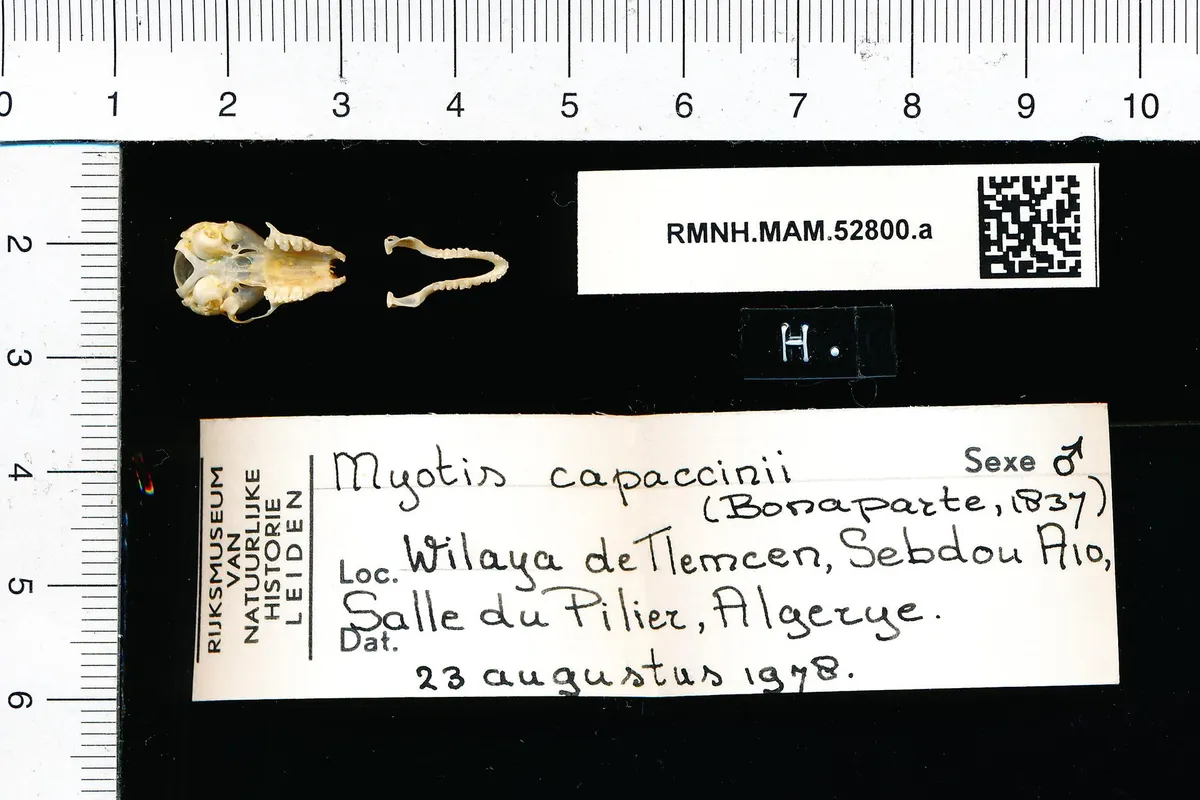 0 1 2 3 4 5 6 7 8 9 10
2
3
4
5
6
RMNH.MAM.52800.a
H.
RIJKSMUSEUM
VAN
NATUURLIJKE
HISTORIE
LEIDEN
Myotis capaccinii
Sexe ♂
(Bonaparte, 1837)
Loc. Wilaya de Tlemcen, Sebdou A10,
Salle du Pilier, Algerye.
Dat.
23 augustus 1978.